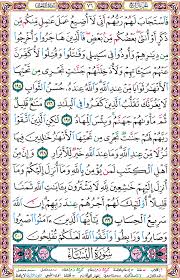 ٧٦
فَٱسْتَجَابَ لَهُمْ رَبُّهُمْ أَنِّي لَآ أُضِيعُ عَمَلَ عَٰمِلٍ مِّنكُم مِّن
ذَكَرٍ أَوْ أُنثَىٰ بَعْضُكُم مِّنۢ بَعْضٍ فَٱلَّذِينَ هَاجَرُواْ وَأُخْرِجُواْ
مِن دِيَٰرِهِمْ وَأُوذُواْ فِي سَبِيلِي وَقَٰتَلُواْ وَقُتِلُواْ لَأُكَفِّرَنَّ
عَنْهُمْ سَيِّـَٔاتِهِمْ وَلَأُدْخِلَنَّهُمْ جَنَّٰتٍ تَجْرِي مِن تَحْتِهَا
ٱلْأَنْهَٰرُ ثَوَابًا مِّنْ عِندِ ٱللَّهِ وَٱللَّهُ عِندَهُۥ حُسْنُ ٱلثَّوَابِ ١٩٥
لَا يَغُرَّنَّكَ تَقَلُّبُ ٱلَّذِينَ كَفَرُواْ فِي ٱلْبِلَٰدِ ١٩٦ مَتَٰعٌ قَلِيلٌ
ثُمَّ مَأْوَىٰهُمْ جَهَنَّمُ وَبِئْسَ ٱلْمِهَادُ ١٩٧ لَٰكِنِ ٱلَّذِينَ ٱتَّقَوْاْ
رَبَّهُمْ لَهُمْ جَنَّٰتٌ تَجْرِي مِن تَحْتِهَا ٱلْأَنْهَٰرُ خَٰلِدِينَ فِيهَا
نُزُلًا مِّنْ عِندِ ٱللَّهِ وَمَا عِندَ ٱللَّهِ خَيْرٌ لِّلْأَبْرَارِ ١٩٨ وَإِنَّ مِنْ
أَهْلِ ٱلْكِتَٰبِ لَمَن يُؤْمِنُ بِٱللَّهِ وَمَآ أُنزِلَ إِلَيْكُمْ وَمَآ أُنزِلَ
إِلَيْهِمْ خَٰشِعِينَ لِلَّهِ لَا يَشْتَرُونَ بِـَٔايَٰتِ ٱللَّهِ ثَمَنًا
قَلِيلًا أُوْلَٰٓئِكَ لَهُمْ أَجْرُهُمْ عِندَ رَبِّهِمْ إِنَّ ٱللَّهَ
سَرِيعُ ٱلْحِسَابِ ١٩٩ يَٰٓأَيُّهَا ٱلَّذِينَ ءَامَنُواْ ٱصْبِرُواْ
وَصَابِرُواْ وَرَابِطُواْ وَٱتَّقُواْ ٱللَّهَ لَعَلَّكُمْ تُفْلِحُونَ ٢٠٠
سُورَةُ النِّسَاءِ